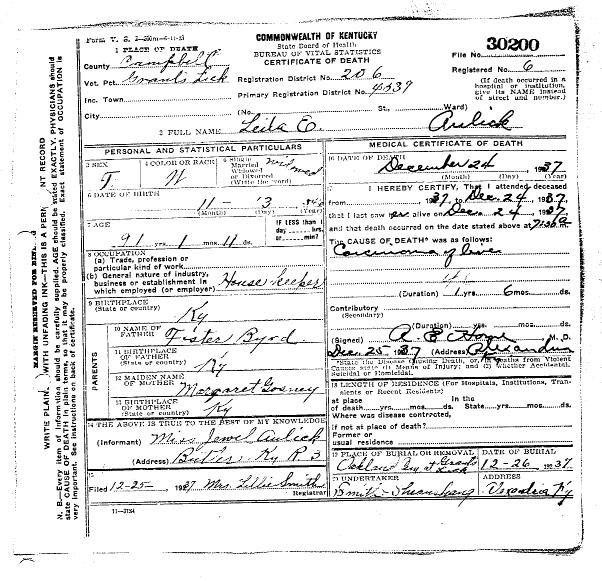 Form V. S.
COMMONWEALTH OF KENTUCKY
State Board of Health
BUREAU OF VITAL STATISTICS
CERTIFICATE OF DEATH
File No. 30200
Registered No. 6
(If death occurred in a hospital or institution, give its NAME instead of street and number.)
1 PLACE OF DEATH
County Campbell
Vot. Pct. Grants Lick
Registration District No. 206
Inc. Town
Primary Registration District No.
City
(No. St., Ward)
2 FULL NAME Leila E. Aulick
PERSONAL AND STATISTICAL PARTICULARS
3 SEX F
4 COLOR OR RACE W
5 Single Married Widowed or Divorced (Write the word) Widowed
6 DATE OF BIRTH 11 - 13
(Month) (Day) (Year)
7 AGE
91 yrs. 1 mos. 11 ds.
IF LESS than 1 day hrs. or min?
8 OCCUPATION
(a) Trade, profession or particular kind of work
(b) General nature of industry, business or establishment in which employed (or employer) Housekeeper
9 BIRTHPLACE
(State or country) Ky
PARENTS
10 NAME OF FATHER Foster Byrd
11 BIRTHPLACE OF FATHER
(State or country) Ky
12 MAIDEN NAME OF MOTHER Margaret Gosney
13 BIRTHPLACE OF MOTHER
(State or country) Ky
14 THE ABOVE IS TRUE TO THE BEST OF MY KNOWLEDGE
(Informant) Miss Jewel Aulick
(Address) Butler Ky R 3
15
Filed 12-25- 1937 Mrs. Lillie Smith
Registrar
MEDICAL CERTIFICATE OF DEATH
16 DATE OF DEATH
December 24, 1937
(Month) (Day) (Year)
17 I HEREBY CERTIFY, That I attended deceased
from 37 to Dec. 24, 1937
that I last saw her alive on Dec. 24, 1937
and that death occurred on the date stated above at
The CAUSE OF DEATH* was as follows:
Carcinoma of liver
(Duration) 1 yrs. 6 mos. ds.
Contributory
(Secondary)
(Duration) yrs. mos. ds.
(Signed) M. D.
Dec. 25 - 37 (Address) Alexandria
*State the Disease Causing Death, or, in deaths from Violent Causes state (1) Means of Injury; and (2) whether Accidental, Suicidal or Homicidal.
18 LENGTH OF RESIDENCE (For Hospitals, Institutions, Transients or Recent Residents)
at place of death yrs. mos. ds. In the State yrs. mos. ds.
Where was disease contracted,
if not at place of death?
Former or usual residence
19 PLACE OF BURIAL OR REMOVAL
at Grants Lick
DATE OF BURIAL
12-26, 1937
20 UNDERTAKER
ADDRESS
Alexandria Ky
11-3184
MARGIN RESERVED FOR
WRITE PLAIN, WITH UNFADING INK—THIS IS A PERM NT RECORD
N. B.—Every item of information should be carefully supplied. AGE should be stated EXACTLY. PHYSICIANS should
state CAUSE OF DEATH in plain terms, so that it may be properly classified. Exact statement of OCCUPATION is
very important. See instructions on back of certificate.